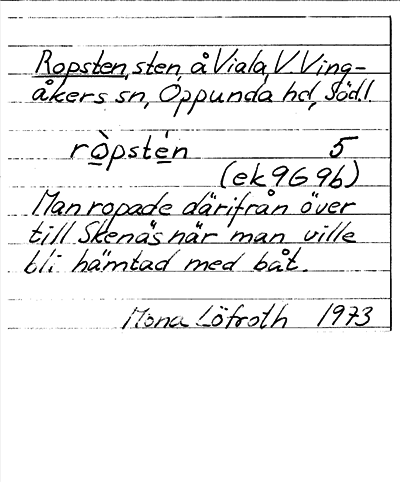 Ropsten, sten, å Viala, V. Ving-
åkers sn, Oppunda hd, Södl.
ròpstén 5
(ek 9G 9b)
Man ropade därifrån över
till Skenäs när man ville
bli hämtad med båt.
Mona Löfroth 1973